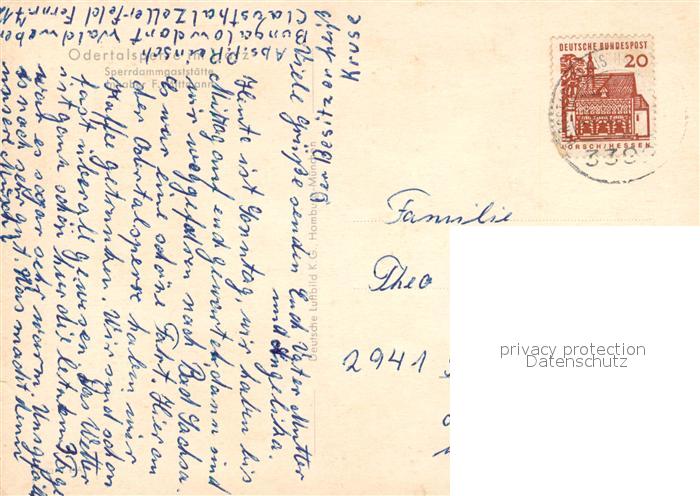 Odertalsperre im Harz
Sperrdammgaststätte
Deutsche Luftbild K.G. Hamburg-München
Abs. Reinsch
Bungalowdorf Waldweben
Clausthal Zellerfeld Fernr. 712
Viele Grüße senden Euch Vater Mutter
und Angelika.
Heute ist Sonntag, wir haben bis
Mittag auf Euch gewartet dann sind
wir weggefahren nach Bad Sachsa.
Es war eine schöne Fahrt. Hier am
der Odertalsperre haben wir
Kaffe getrunken. Wir sind schon
fast überall gewesen. Das Wetter
ist ganz schön hier die letzten 3 Tage
war es sogar sehr warm. Uns gefällt
es noch sehr gut. Was macht denn
unser
Der Besitzer
Kruse
DEUTSCHE BUNDESPOST
20
LORSCH/HESSEN
339
Familie
Theo
2941
privacy protection
Datenschutz